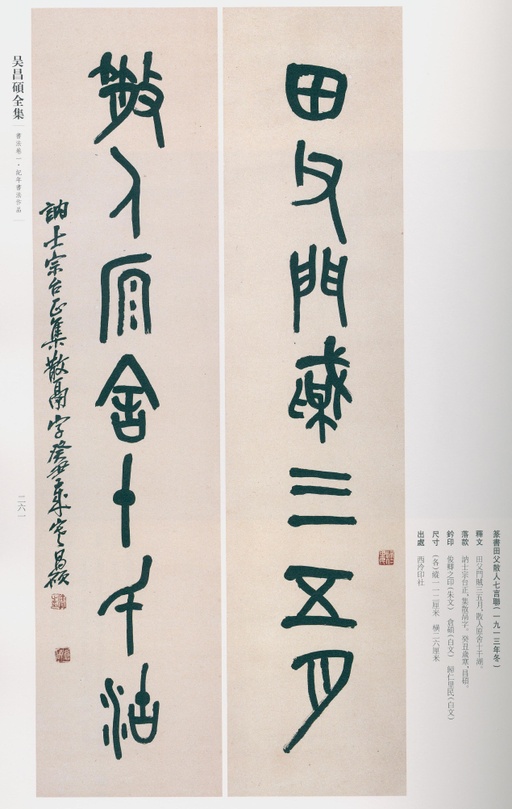 田父門三五月
散人原舍十千湖
訥士宗台正集散鬲字癸丑歲寒昌碩
篆書田父散人七言聯(一九一三年冬)
釋文 田父門三五月。散人原舍十千湖。
落款 訥士宗台正。集散鬲字。癸丑歲寒。昌碩。
鈐印 俊卿之印(朱文) 倉碩(白文) 歸仁里民(白文)
尺寸 (各)縱一一二厘米 橫二六厘米
出處 西泠印社
吴昌碩全集
書法卷一・紀年書法作品
二六一